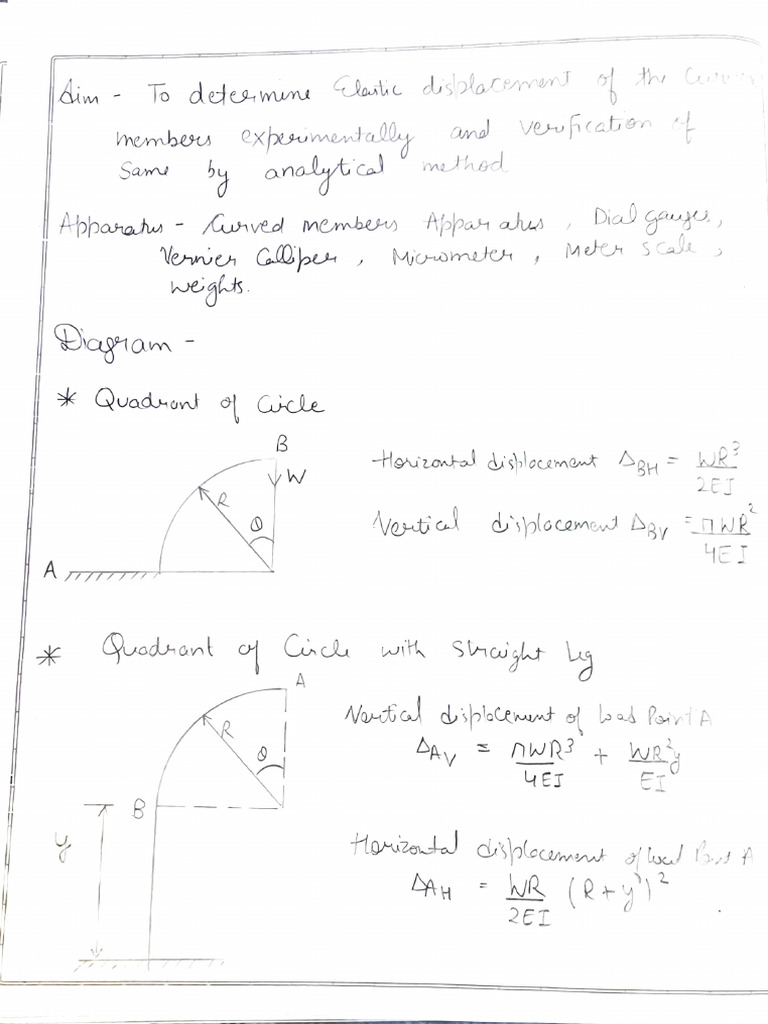 Aim - To determine Elastic displacement of the
members experimentally and verification of
Same by analytical method
Apparatus - Curved members Apparatus, Dial gauges,
Vernier Calliper, Micrometer, Meter Scale,
weights.
Diagram -
* Quadrant of Circle
B
W
R
θ
A
Horizontal displacement ΔBH = WR³/2EI
Vertical displacement ΔBV = πWR²/4EI
* Quadrant of Circle with Straight Leg
A
R
θ
B
y
Vertical displacement of load Point A
ΔAV = πWR³/4EI + WR²y/EI
Horizontal displacement of load Point A
ΔAH = WR/2EI (R+y)²